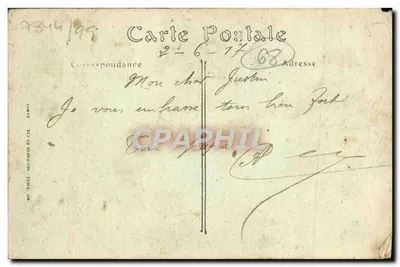 7844/99
Carte Postale
2-6-17
68
Correspondance
Adresse
Mon cher Justin
Je vous embrasse tous bien fort
Ton papa